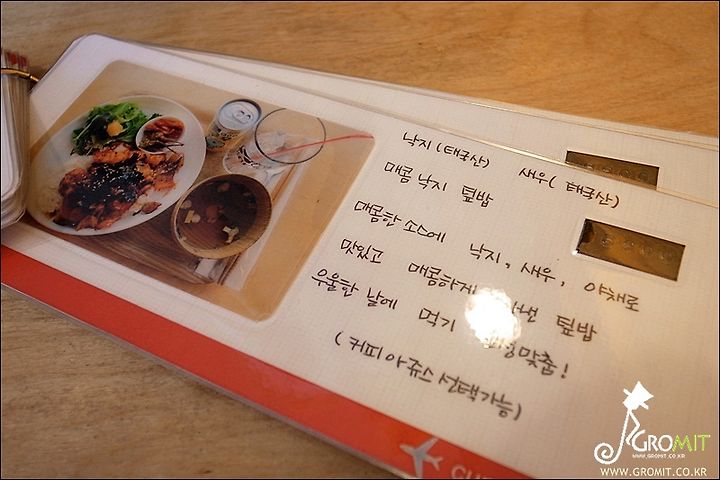 낙지(태국산) 새우(태국산)
매콤 낙지 덮밥
매콤한 소스에 낙지, 새우, 야채로
맛있고 매콤하게 덮밥
우울한 날에 먹기 안성맞춤!
(커피 아쥬스 선택가능)
GROMIT
WWW.GROMIT.CO.KR
WWW.GROMIT.CO.KR